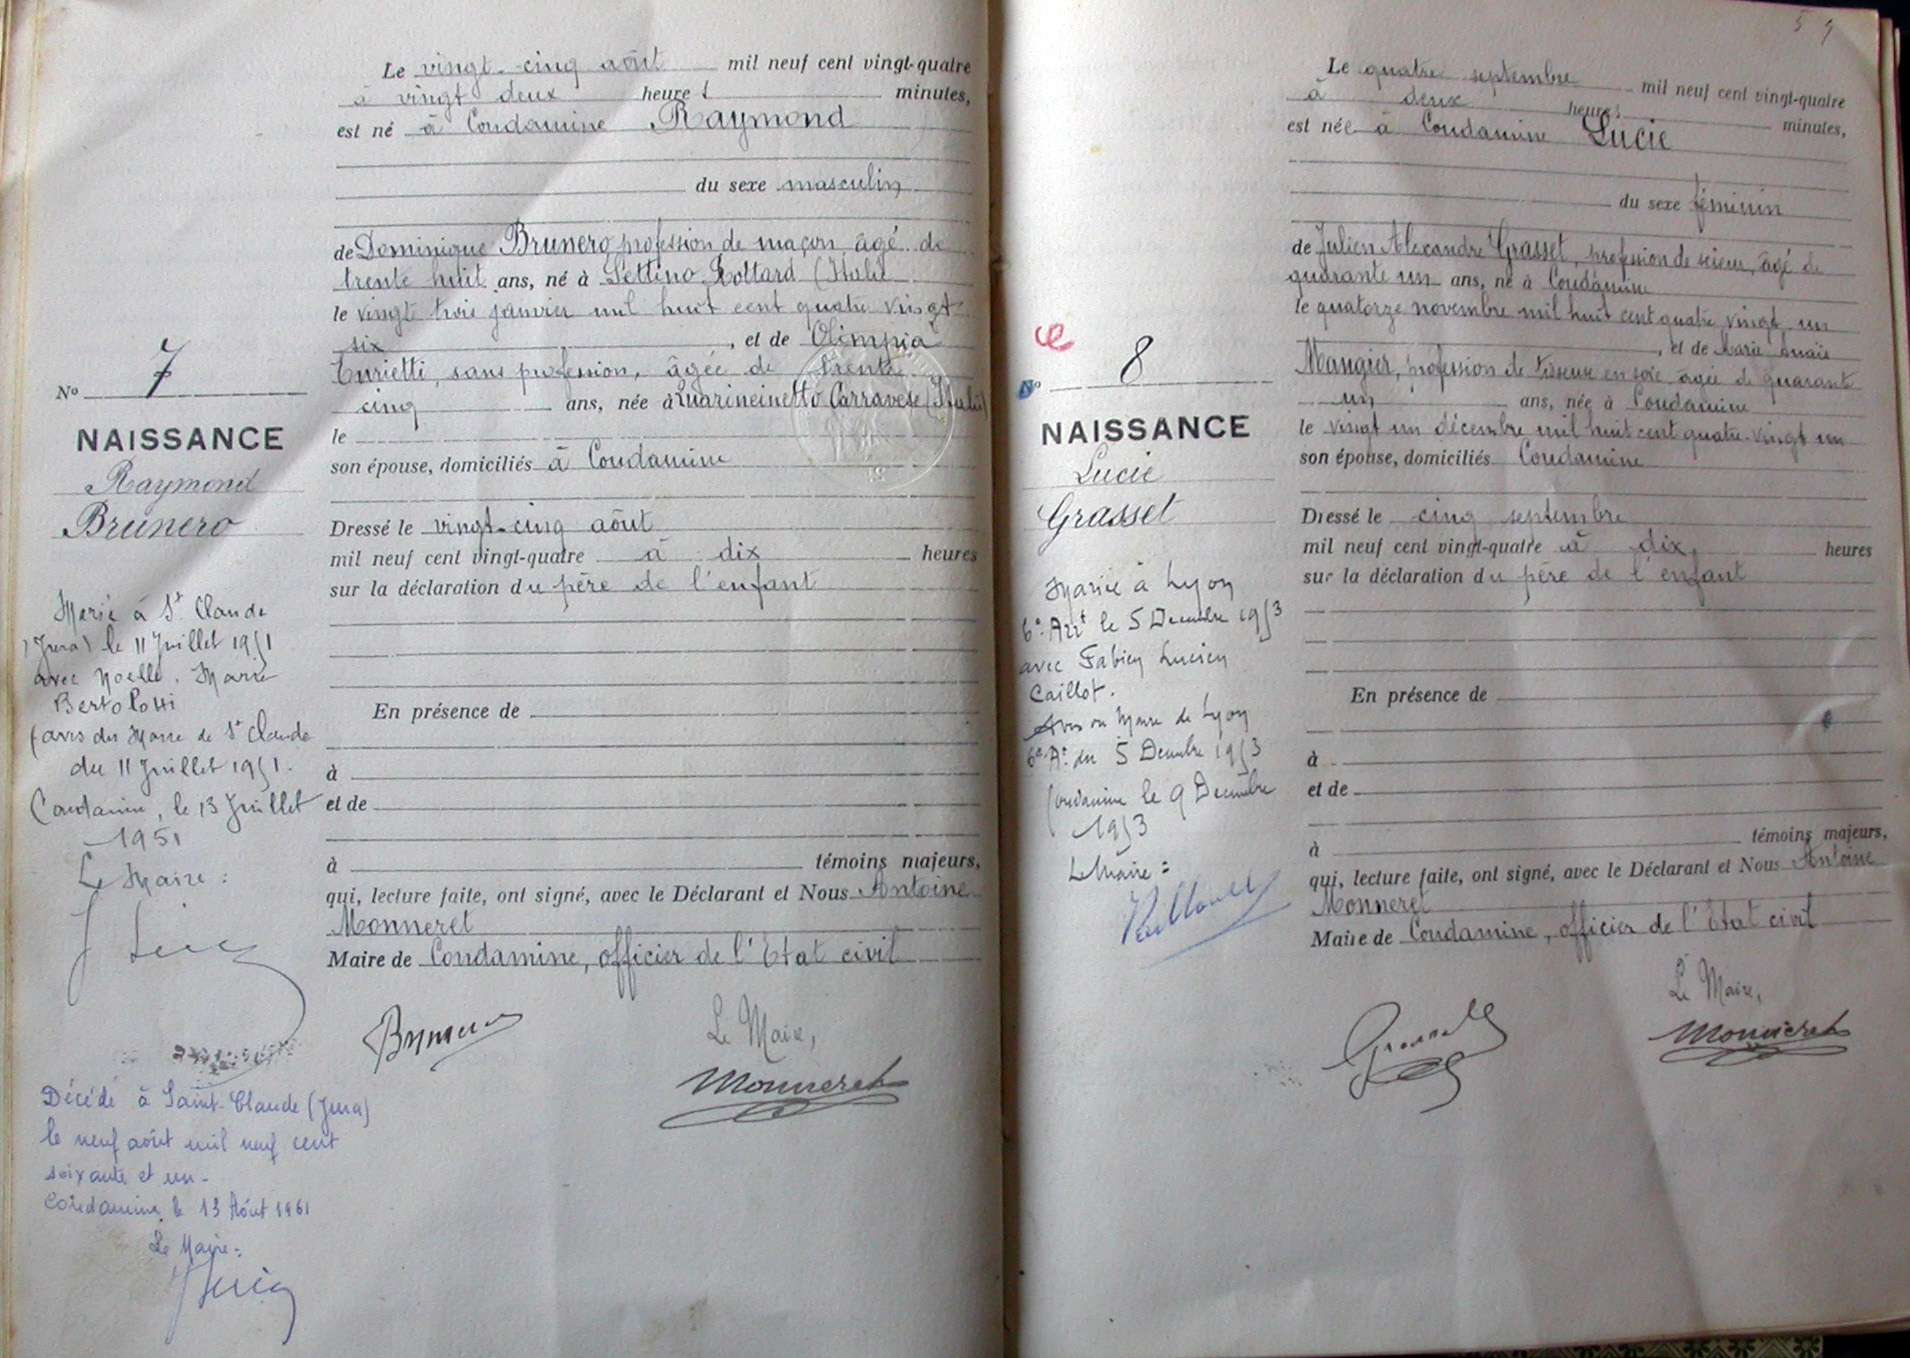 Le vingt-cinq août mil neuf cent vingt-quatre
à vingt deux heures minutes,
est né à Condamine Raymond
du sexe masculin
de Dominique Brunero, profession de maçon, âgé de
trente huit ans, né à Settino Rottard (Italie
le vingt trois janvier mil huit cent quatre vingt
six , et de Olimpia
Turietti, sans profession, âgée de trente
cinq ans, née à Carravese (Italie)
le
son épouse, domiciliés à Condamine
Dressé le vingt-cinq août
mil neuf cent vingt-quatre à dix heures
sur la déclaration du père de l'enfant
En présence de
à
et de
à témoins majeurs,
qui, lecture faite, ont signé, avec le Déclarant et Nous Antoine
Monneret
Maire de Condamine, officier de l'Etat civil
Brunero
Le Maire,
Monneret
No 7
NAISSANCE
Raymond
Brunero
Marié à St Claude
(Jura) le 11 Juillet 1951
avec Noelle, Marie
Bertolotti
(avis du Maire de St Claude
du 11 Juillet 1951.
Condamine, le 13 Juillet
1951
Le Maire :
Décédé à Saint-Claude (Jura)
le neuf août mil neuf cent
soixante et un-
Condamine, le 13 Août 1961
Le Maire :
59
Le quatre septembre mil neuf cent vingt-quatre
à deux heures minutes,
est née à Condamine Lucie
du sexe féminin
de Julien Alexandre Grasset, profession de scieur, âgé de
quarante un ans, né à Condamine
le quatorze novembre mil huit cent quatre vingt un
, et de Marie Anaïs
Mangier, profession de tisseuse en soie âgée de quarante
un ans, née à Condamine
le vingt un décembre mil huit cent quatre-vingt un
son épouse, domiciliés Condamine
Dressé le cinq septembre
mil neuf cent vingt-quatre à dix heures
sur la déclaration du père de l'enfant
En présence de
à
et de
à témoins majeurs,
qui, lecture faite, ont signé, avec le Déclarant et Nous Antoine
Monneret
Maire de Condamine, officier de l'Etat civil
Le Maire,
Grasset
Monneret
No 8
NAISSANCE
Lucie
Grasset
Mariée à Lyon
6e Arrt le 5 Décembre 1953
avec Fabien Lucien
Caillot.
Avis du Maire de Lyon
6e A. du 5 Décembre 1953
Condamine le 9 Décembre
1953
Le Maire :